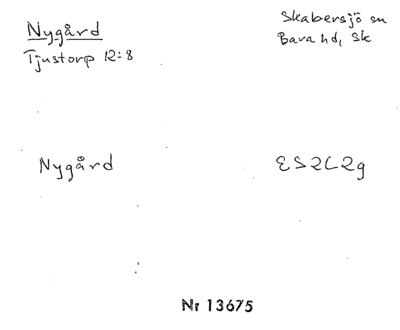 Nygård
Tjustorp 12:8
Skabersjö sn
Bara hd, Sk
Nygård
ES2C2g
Nr 13675